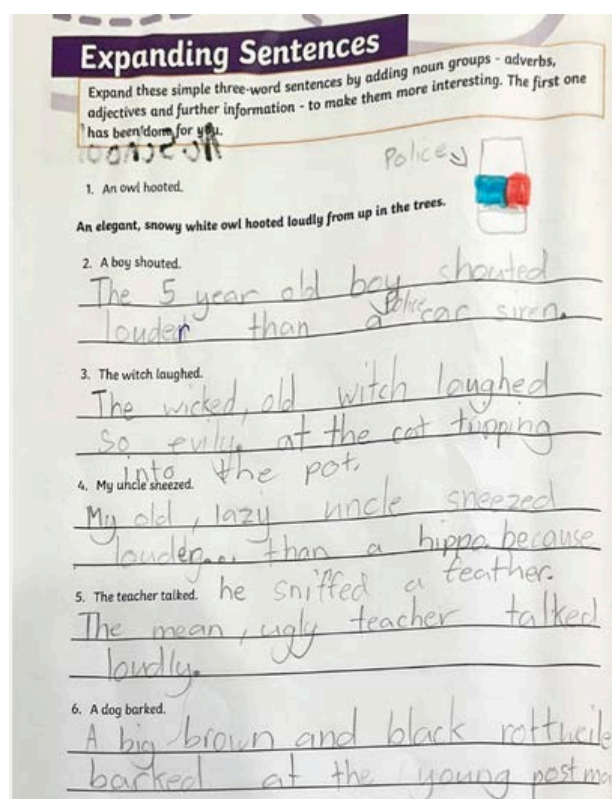 Expanding Sentences
Expand these simple three-word sentences by adding noun groups - adverbs,
adjectives and further information - to make them more interesting. The first one
has been done for you.
Police
1. An owl hooted.
An elegant, snowy white owl hooted loudly from up in the trees.
2. A boy shouted.
The 5 year old boy shouted
louder than a Police car siren.
3. The witch laughed.
The wicked, old witch laughed
So evily. at the cat tupping
into the pot.
4. My uncle sneezed.
My old, lazy uncle sneezed
louder... than a hippo because
he sniffed a feather.
5. The teacher talked.
The mean, ugly teacher talked
loudly.
6. A dog barked.
A big brown and black rottweile
barked at the young postma